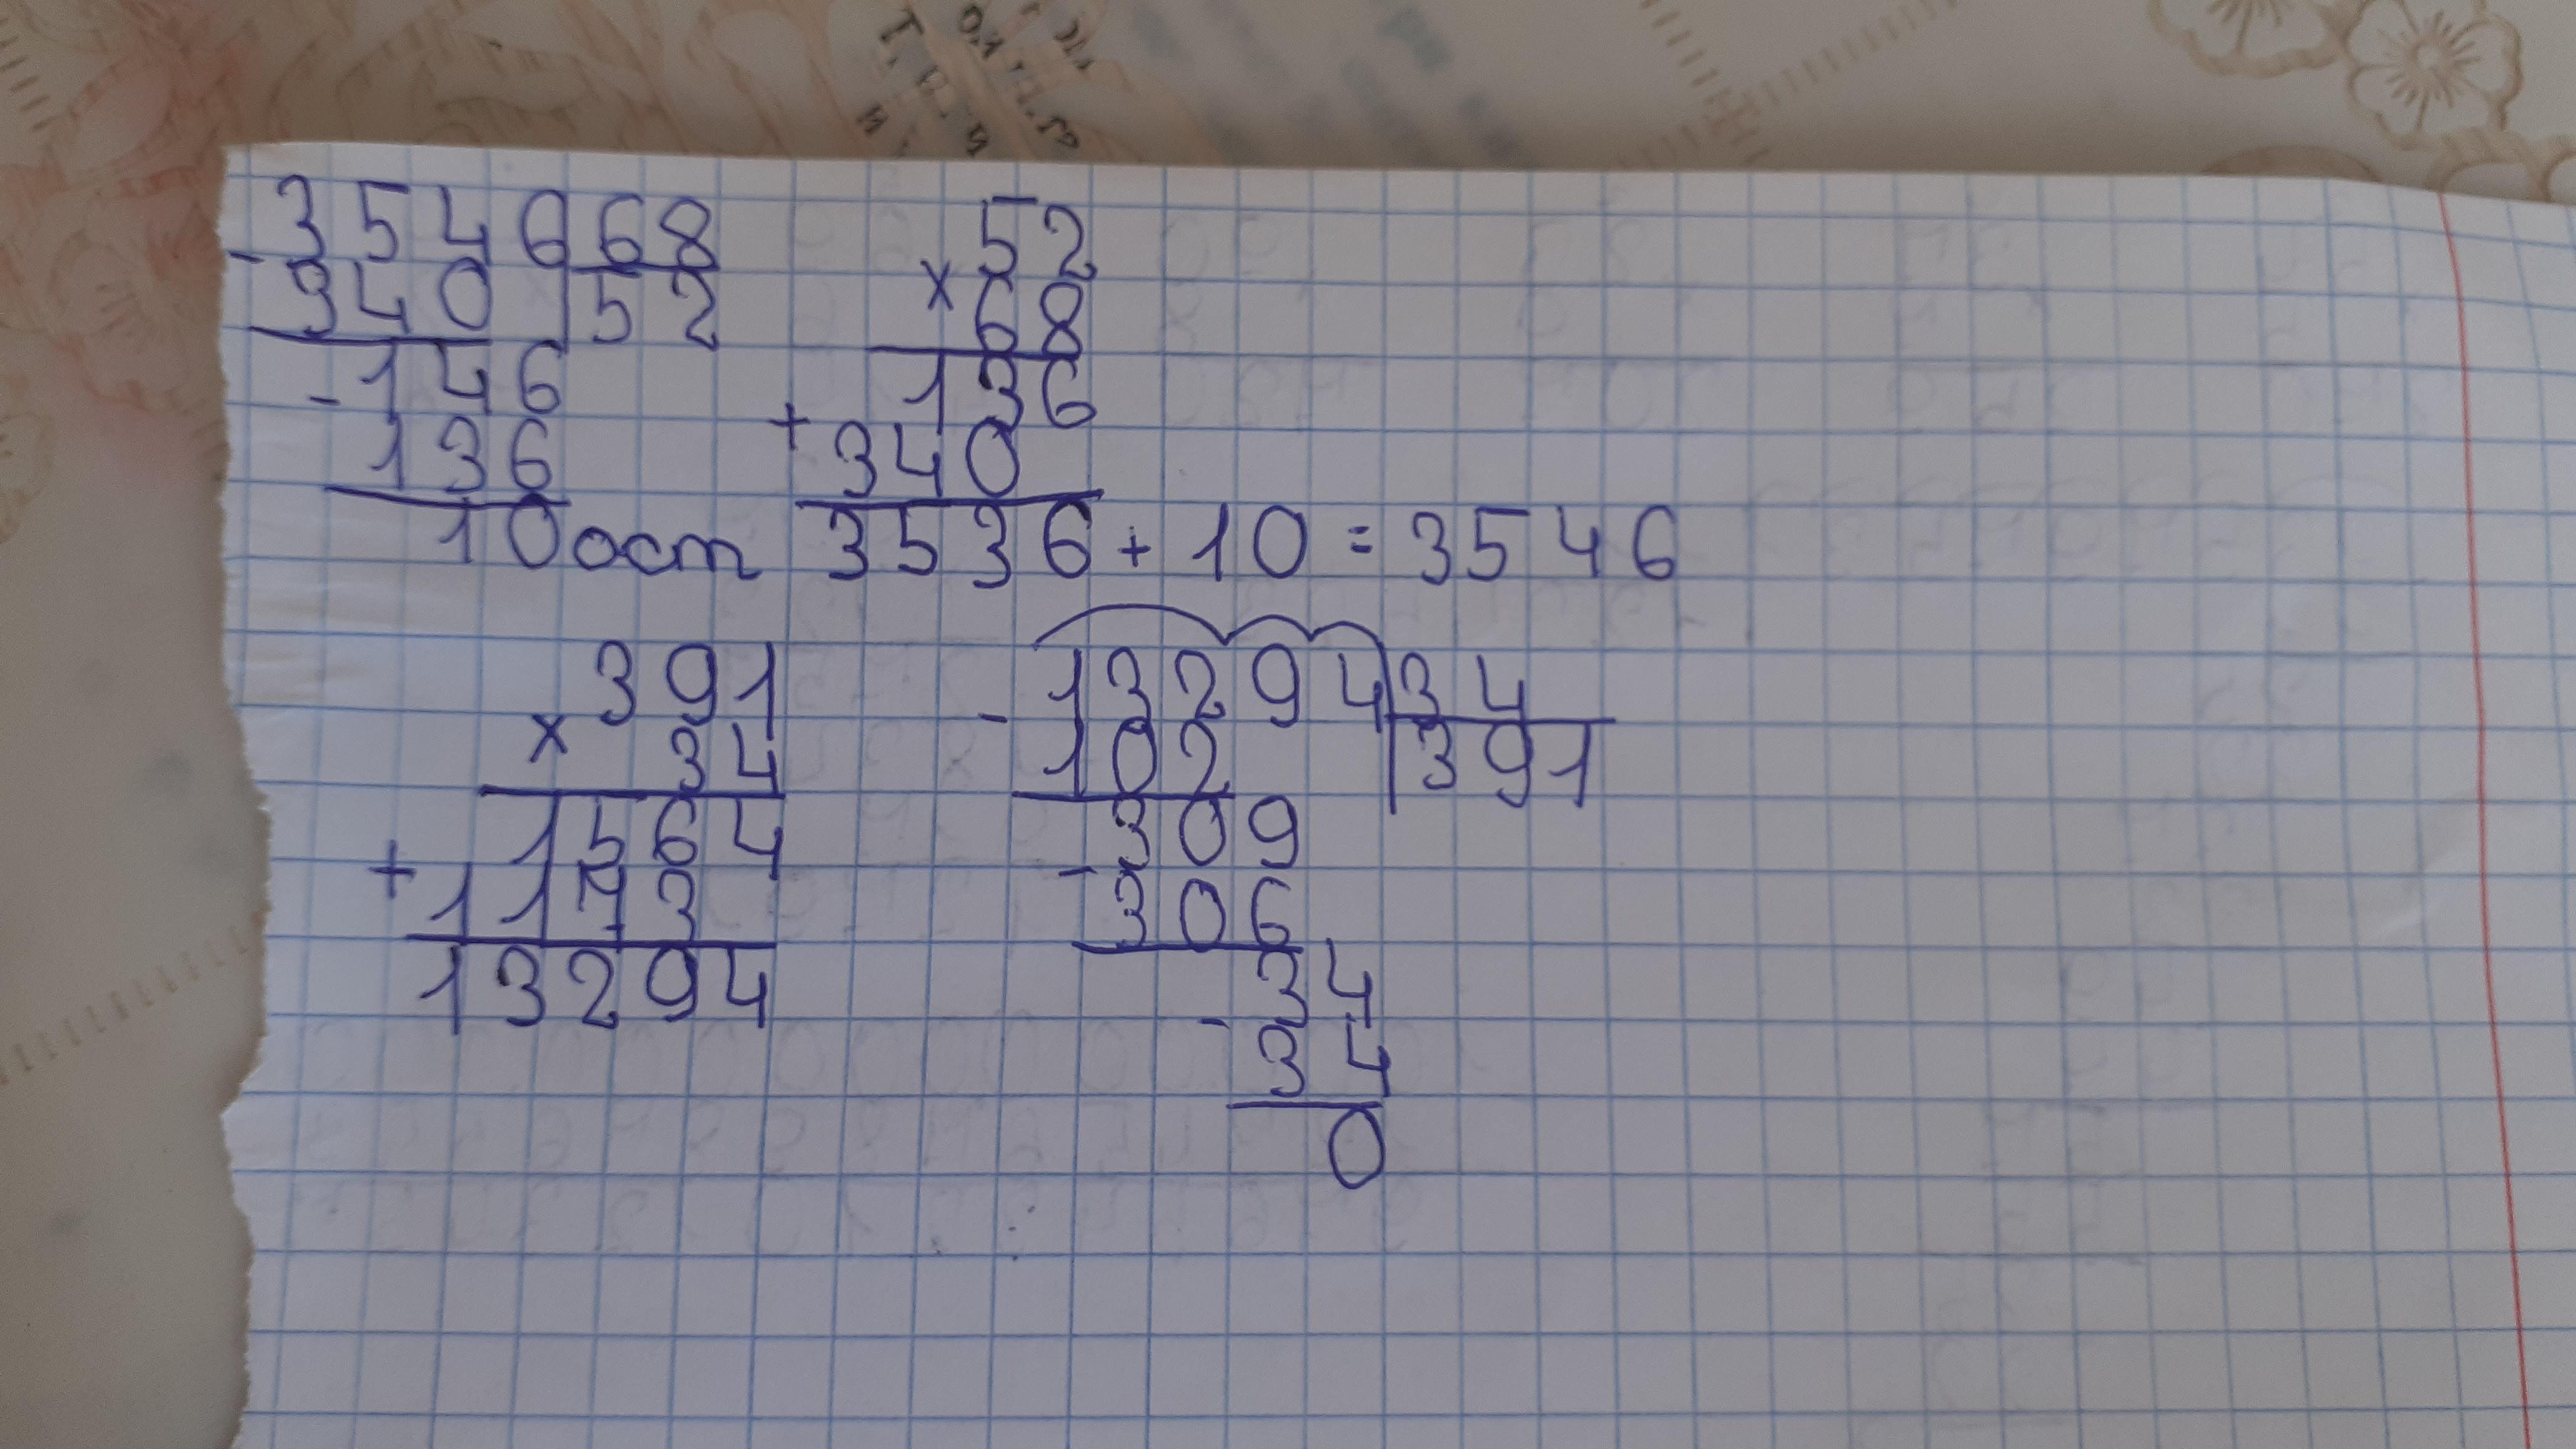 3546 68
- 340 52
- 146
136
10 ост
52
× 68
136
+ 340
3536 + 10 = 3546
391
× 34
1564
+ 1173
13294
- 13294 34
102 391
309
- 306
34
- 34
0